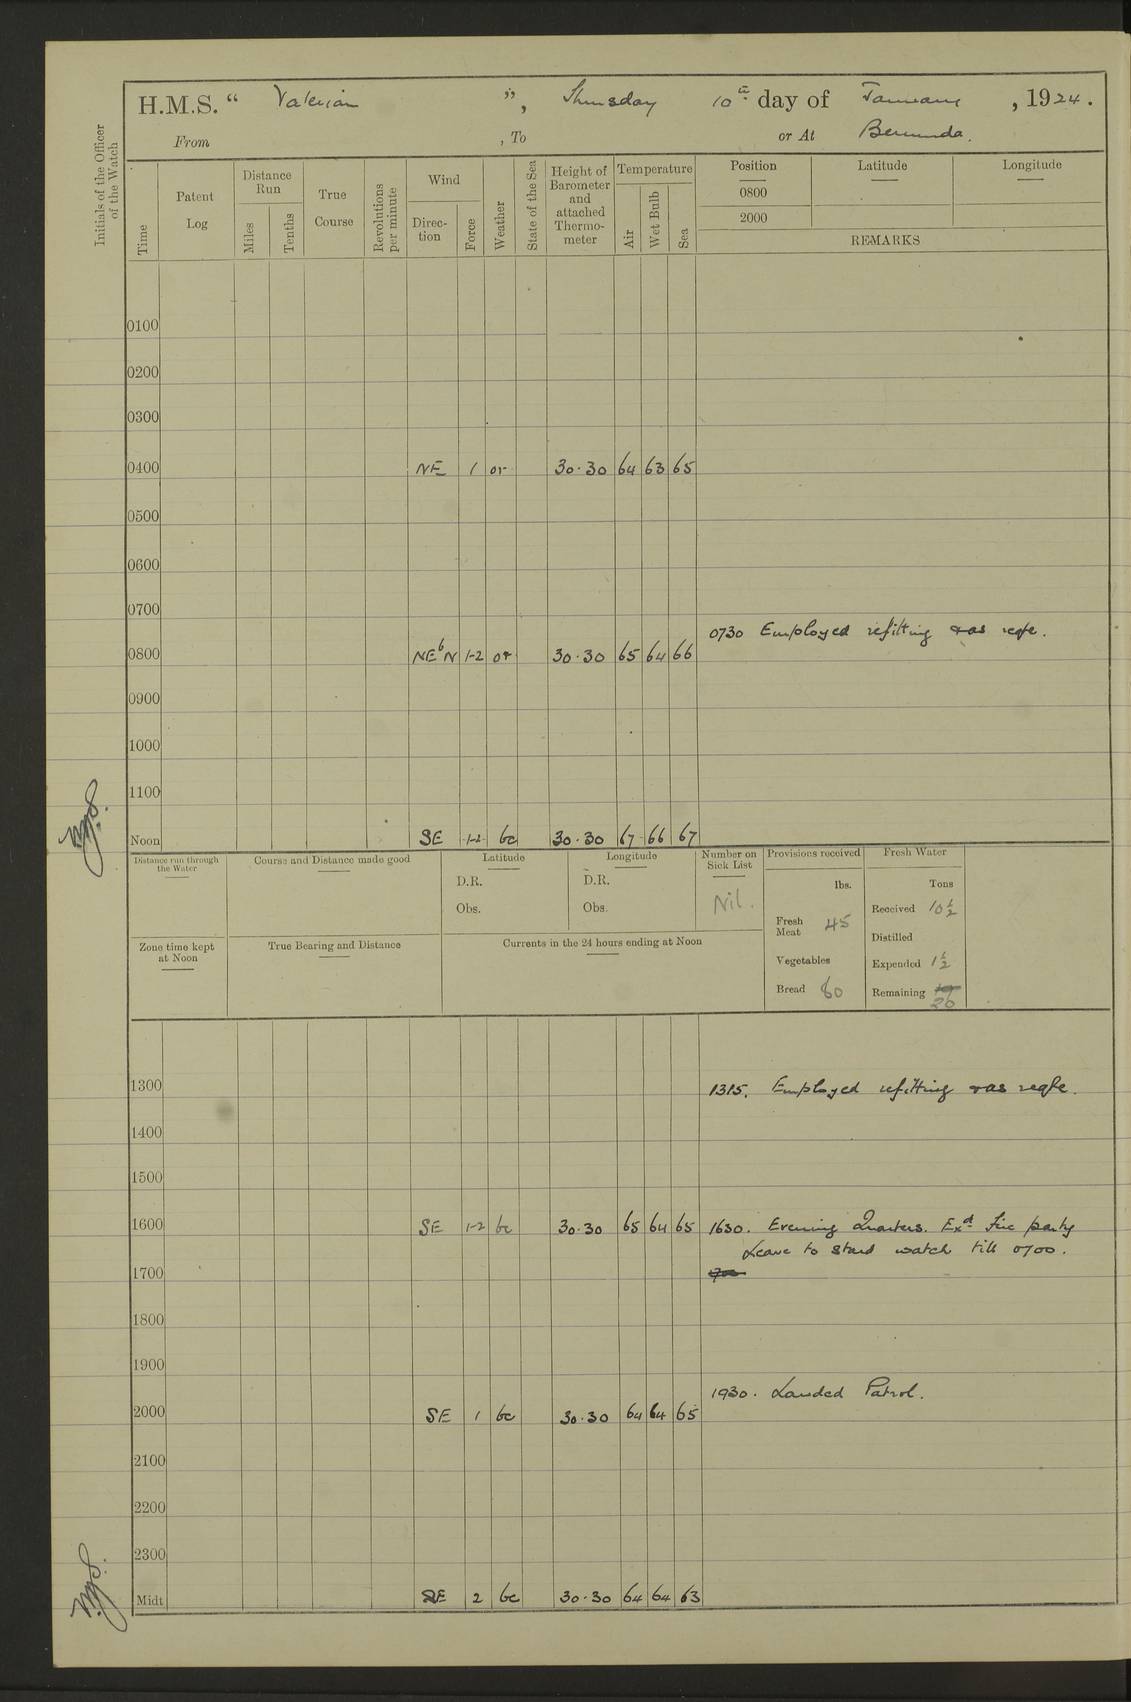 H.M.S. “ Valerian ”, Thursday 10th day of January, 1924.
From , To or At Bermuda.
Initials of the Officer of the Watch
Time
Patent Log
Distance Run
Miles
Tenths
True Course
Revolutions per minute
Wind
Direc-tion
Force
Weather
State of the Sea
Height of Barometer and attached Thermo-meter
Temperature
Air
Wet Bulb
Sea
Position Latitude Longitude
0800
2000
REMARKS
0100
0200
0300
0400 NE 1 or 30.30 64 63 65
0500
0600
0700
0730 Employed refitting & as reqte.
0800 NEbN 1-2 or 30.30 65 64 66
0900
1000
1100
Noon SE 1-2 bc 30.30 67 66 67
Distance run through the Water
Course and Distance made good
Latitude
D.R.
Obs.
Longitude
D.R.
Obs.
Number on Sick List
Nil.
Provisions received
lbs.
Fresh Meat 45
Vegetables
Bread 80
Fresh Water
Tons
Received 10½
Distilled
Expended 1½
Remaining 19 20
Zone time kept at Noon
True Bearing and Distance
Currents in the 24 hours ending at Noon
1300 1315. Employed refitting & as reqte.
1400
1500
1600 SE 1-2 bc 30.30 65 64 65 1630. Evening Quarters. Exd fire party
Leave to stard watch till 0700.
1700
1800
1900
1930. Landed Patrol.
2000 SE 1 bc 30.30 64 64 65
2100
2200
2300
Midt SE 2 bc 30.30 64 64 63